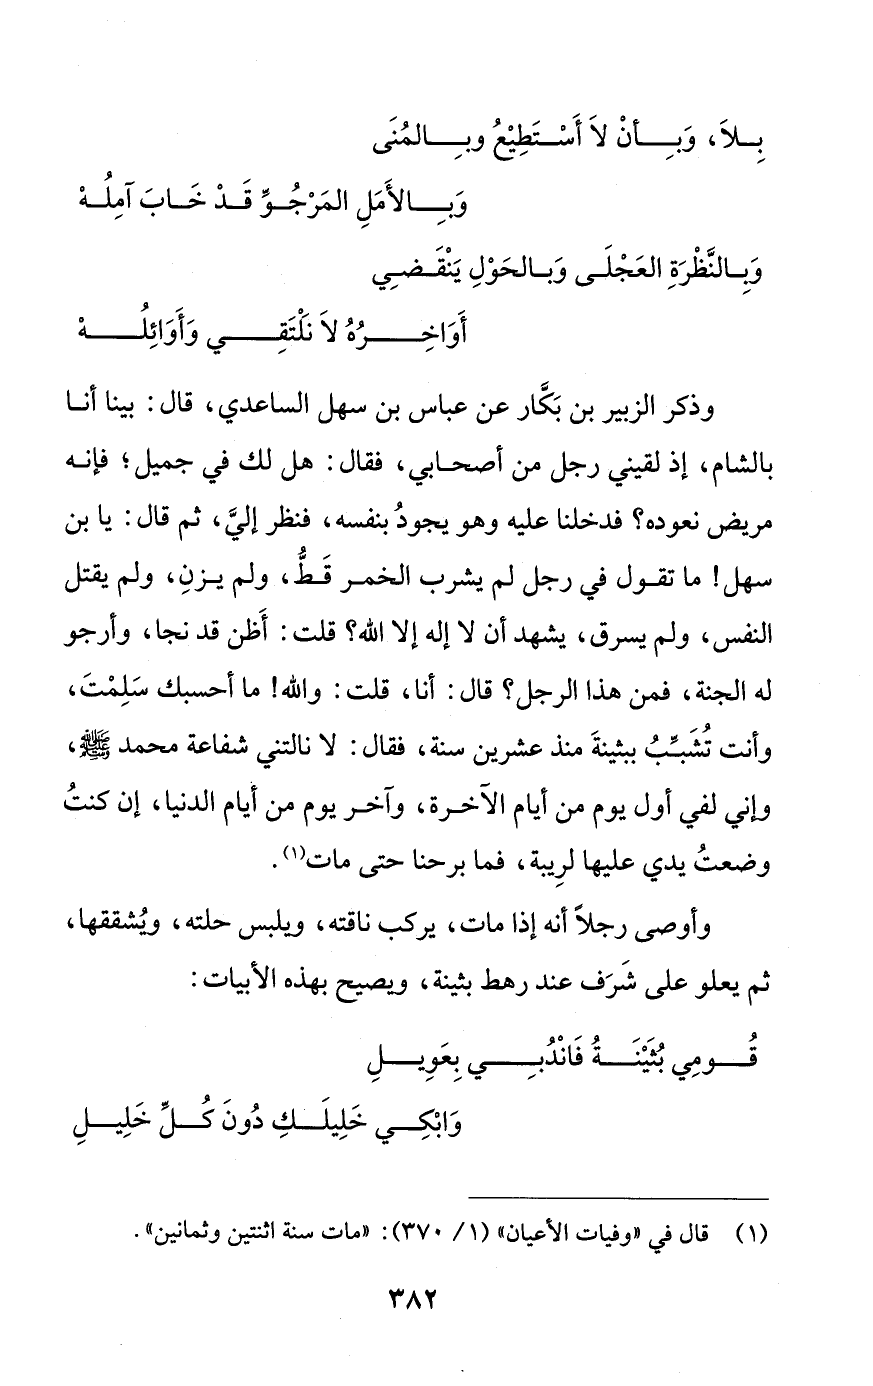 بِلاَ، وَبِأنْ لاَ أَسْتَطِيْعُ وبِالمُنَى
وَبِالأَمَلِ المَرْجُوِّ قَدْ خَابَ آمِلُهْ
وَبِالنَّظْرَةِ العَجْلَى وَبالحَوْلِ يَنْقَضِي
أَوَاخِرُهُ لاَ نَلْتَقِي وَأَوَائِلُهْ
وذكر الزبير بن بَكَّار عن عباس بن سهل الساعدي، قال: بينا أنا
بالشام، إذ لقيني رجل من أصحابي، فقال: هل لك في جميل؛ فإنه
مريض نعوده؟ فدخلنا عليه وهو يجودُ بنفسه، فنظر إليَّ، ثم قال: يا بن
سهل! ما تقول في رجل لم يشرب الخمر قَطُّ، ولم يزنِ، ولم يقتل
النفس، ولم يسرق، يشهد أن لا إله إلا الله؟ قلت: أَظن قد نجا، وأرجو
له الجنة، فمن هذا الرجل؟ قال: أنا، قلت: والله! ما أحسبك سَلِمْتَ،
وأنت تُشَبِّبُ ببثينةَ منذ عشرين سنة، فقال: لا نالتني شفاعة محمد ﷺ،
وإني لفي أول يوم من أيام الآخرة، وآخر يوم من أيام الدنيا، إن كنتُ
وضعتُ يدي عليها لرِيبة، فما برحنا حتى مات(١).
وأوصى رجلاً أنه إذا مات، يركب ناقته، ويلبس حلته، ويُشققها،
ثم يعلو على شَرَف عند رهط بثينة، ويصيح بهذه الأبيات:
قُومِي بُثَيْنَةُ فَانْدُبِي بِعَوِيلِ
وَابْكِي خَلِيلَكِ دُونَ كُلِّ خَلِيلِ
(١) قال في «وفيات الأعيان» (١/ ٣٧٠): «مات سنة اثنتين وثمانين».
٣٨٢